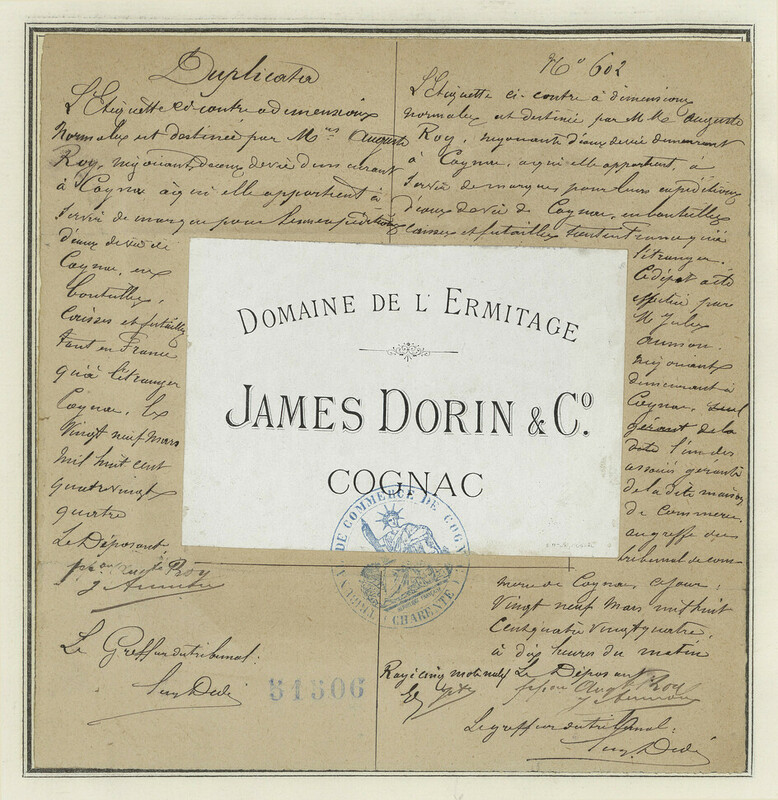 Duplicata
L'Etiquette ci-contre a dimensions
normales est destinée par Mrs Auguste
Roy, négociants d'eaux de vie demeurant
à Cognac à qui elle appartient à
servir de marque pour leurs expéditions
d'eaux de vie de
Cognac, en
bouteilles,
caisses et futailles
tant en France
qu'à l'étranger
Cognac, le
Vingt neuf Mars
mil huit cent
quatre vingt
quatre
Le Déposant
Roy
Le Greffier du tribunal:
51506
No 602
L'Etiquette ci-contre à dimensions
normales est destinée par MM Auguste
Roy, négociants d'eaux de vie demeurant
à Cognac, à qui elle appartient, à
servir de marques pour leurs expéditions
d'eaux de vie de Cognac, en bouteilles
caisses et futailles tant en France qu'à
l'étranger.
Ce dépôt a été
effectué par
M Jules
négociant
demeurant à
Cognac, seul
gérant de la
dite l'un des
associés gérants
de la dite maison
de Commerce,
au greffe du
tribunal de com-
merce de Cognac, ce jour:
Vingt neuf Mars mil huit
Cent quatre vingt quatre,
à dix heures du matin
Rayé cinq mots nuls
Le Déposant
Roy
Le greffier du tribunal:
DOMAINE DE L'ERMITAGE
JAMES DORIN & Co.
COGNAC
TRIBUNAL DE COMMERCE DE COGNAC
(CHARENTE)